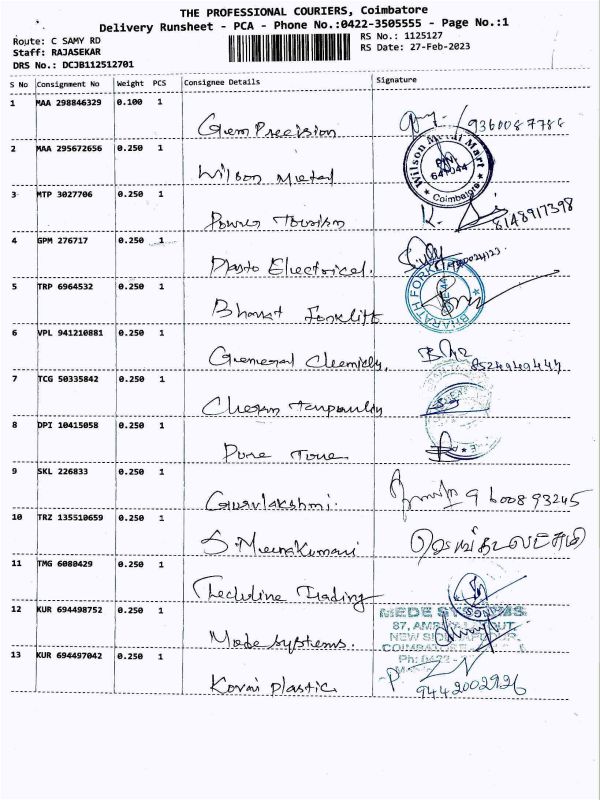 THE PROFESSIONAL COURIERS, Coimbatore
Delivery Runsheet - PCA - Phone No.:0422-3505555 - Page No.:1
Route: C SAMY RD
RS No.: 1125127
Staff: RAJASEKAR
RS Date: 27-Feb-2023
DRS No.: DCJB112512701
S No Consignment No Weight PCS Consignee Details Signature
1 MAA 298846329 0.100 1
Gem Precision 9360087788
2 MAA 295672656 0.250 1
Wilson Metal
Wilson Metal Mart
641044
Coimbatore
3 MTP 3027706 0.250 1
Power Tourism K. 8148917398
4 GPM 276717 0.250 1
Electrical.
5 TRP 6964532 0.250 1
Bharat Forklift
BHARATH FORK
6 VPL 941210881 0.250 1
General 8524949444
7 TCG 50335842 0.250 1
8 DPI 10415058 0.250 1
Pure Tone
9 SKL 226833 0.250 1
Gurulakshmi. 9600893245
10 TRZ 135510659 0.250 1
S. Meenakumari
11 TMG 6080429 0.250 1
Trading
12 KUR 694498752 0.250 1
Mede Systems.
MEDE SYSTEMS
87,
NEW
COIMBATORE
Ph: 0422 -
13 KUR 694497042 0.250 1
Kovai Plastic 9442002926